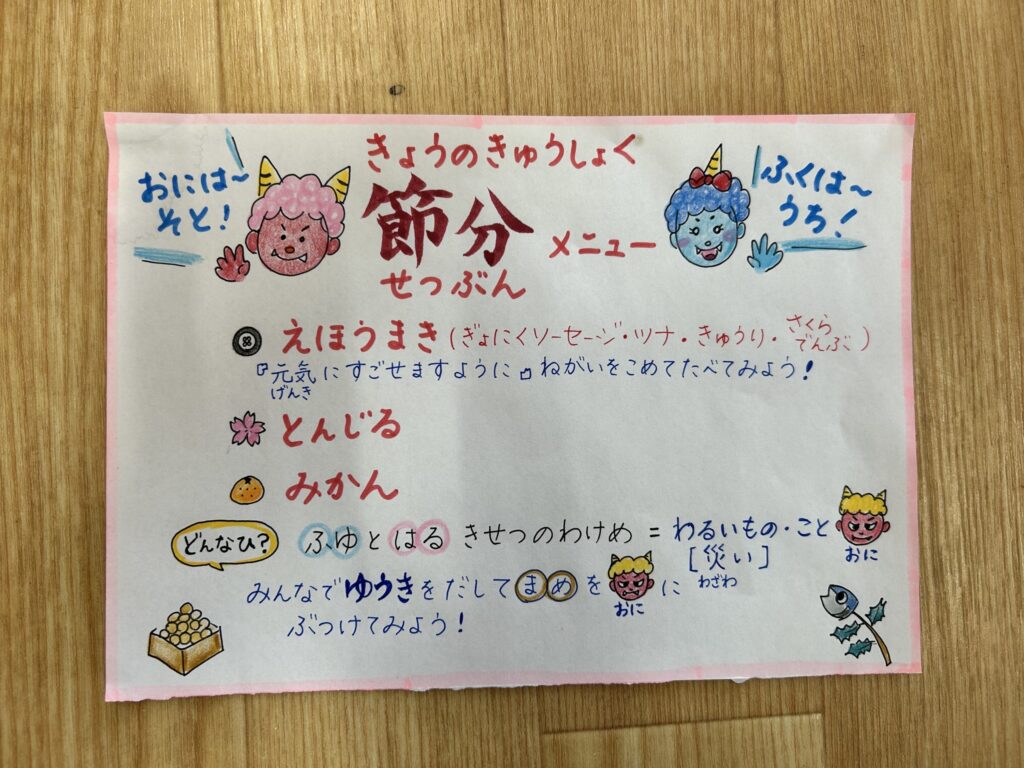 きょうのきゅうしょく
おには～
そと！
節分
せつぶん
メニュー
ふくは～
うち！
えほうまき(ぎょにくソーセージ・ツナ・きゅうり・さくらでんぶ)
『元気にすごせますように』ねがいをこめてたべてみよう！
げんき
とんじる
みかん
どんなひ？
ふゆとはる きせつのわけめ = わるいもの・こと
おに
[災い]
わざわ
みんなでゆうきをだしてまめを に
おに
ぶつけてみよう！